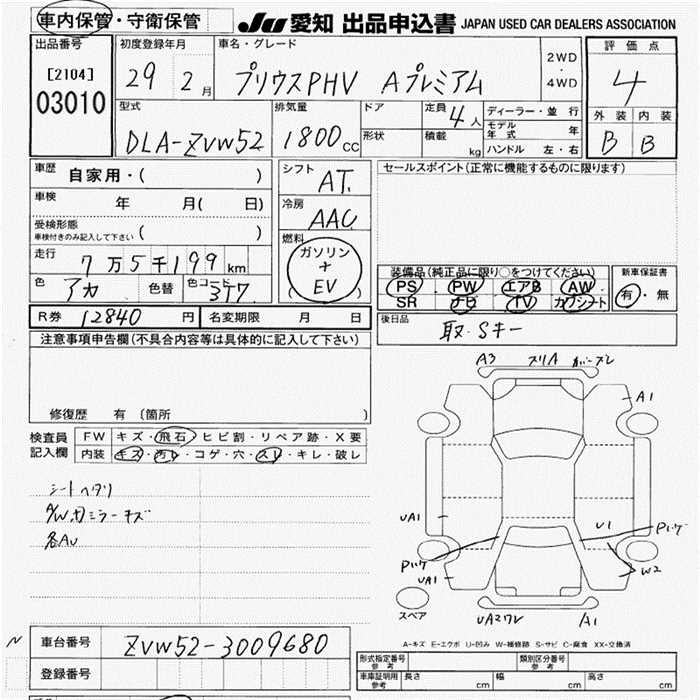 車内保管・守衛保管 JU 愛知 出品申込書 JAPAN USED CAR DEALERS ASSOCIATION
出品番号 初度登録年月 車名・グレード 2WD 評価点
[2104] 29 2月 プリウスPHV Aプレミアム ・ 4
03010 4WD 外装 内装
型式 排気量 ドア 定員 4人 ディーラー・並 行 B B
DLA-ZVW52 1800CC 形状 積載 kg モデル年式 年
ハンドル 左・右
車歴 自家用・( ) シフト AT. セールスポイント(正常に機能するものに限ります)
車検 年 月( 日) 冷房
受検形態 車検付きのみ記入して下さい ( ) AAC
走行 7万5千199km 燃料 ガソリン
色 アカ 色替 色コード 3T7. + EV
装備品(純正品に限り○をつけてください) 新車保証書
PS PW エアB AW 有・無
SR ナビ TV カワシート
R券 12840 円 名変期限 月 日 後日品 取.Sキー
注意事項申告欄(不具合内容等は具体的に記入して下さい)
修復歴 有 (箇所 )
検査員 FW キズ・飛石・ヒビ割・リペア跡・X要
記入欄 内装 キズ・汚レ・コゲ・穴・スレ・キレ・破レ
シートヘタリ
A/W.カミラーキズ
各AU
A3 スリA ガバーズレ
A1
UA1 U1 Pハゲ
Pハゲ W2
UA1
スペア UA2ワレ A1
A-キズ E-エクボ U-凹み W-補修跡 S-サビ C-腐食 XX-交換済
N 車台番号 ZVW52-3009680
登録番号
形式指定番号 参考 類別区分番号 参考
車庫証明用 参考 長さ cm 幅 cm 高さ cm